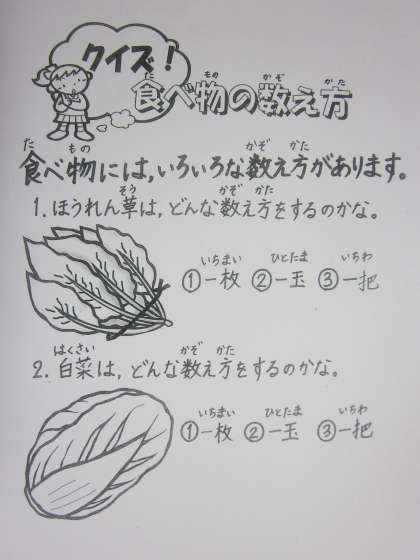 クイズ！
食べ物の数え方
食べ物には，いろいろな数え方があります。
1．ほうれん草は，どんな数え方をするのかな。
①一枚 ②一玉 ③一把
2．白菜は，どんな数え方をするのかな。
①一枚 ②一玉 ③一把